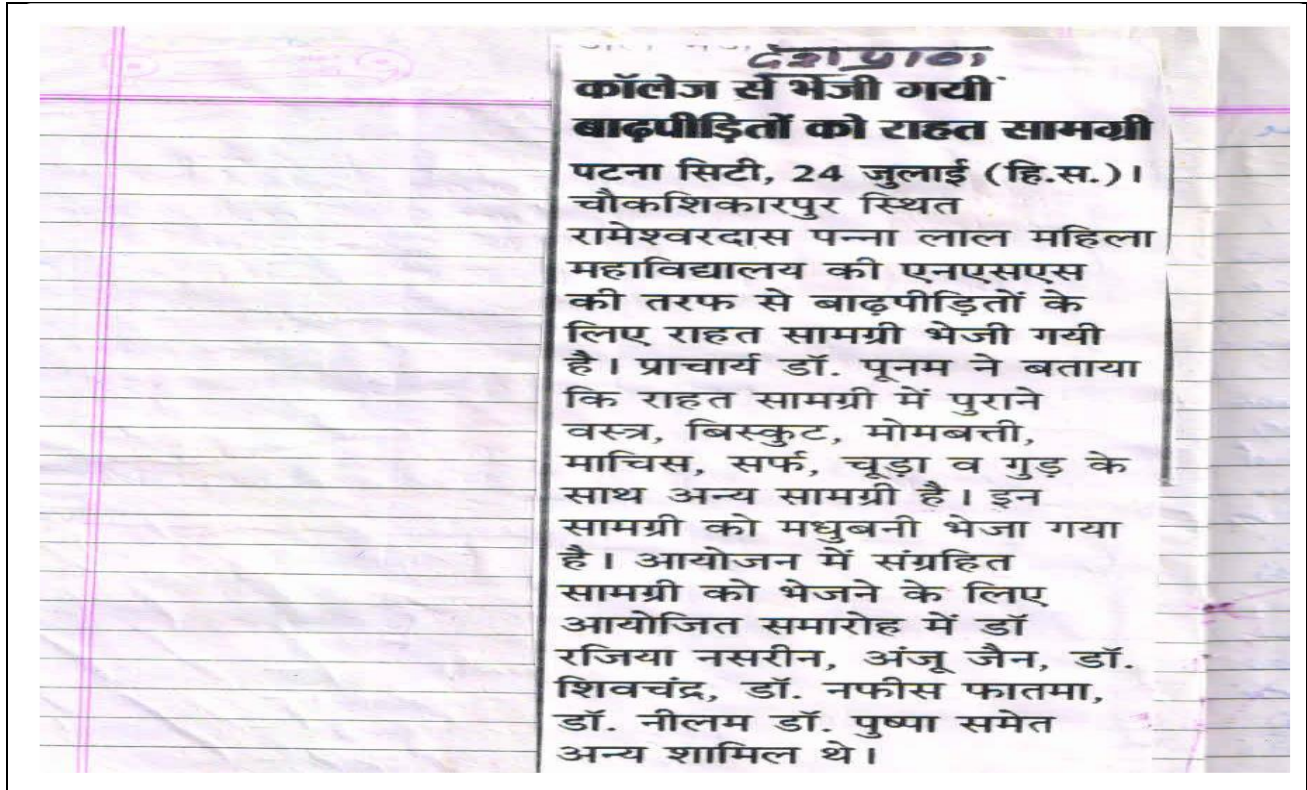 देशप्राण
कॉलेज से भेजी गयीं
बाढ़पीड़ितों को राहत सामग्री
पटना सिटी, 24 जुलाई (हि.स.)।
चौकशिकारपुर स्थित
रामेश्वरदास पन्ना लाल महिला
महाविद्यालय की एनएसएस
की तरफ से बाढ़पीड़ितों के
लिए राहत सामग्री भेजी गयी
है। प्राचार्य डॉ. पूनम ने बताया
कि राहत सामग्री में पुराने
वस्त्र, बिस्कुट, मोमबत्ती,
माचिस, सर्फ, चूड़ा व गुड़ के
साथ अन्य सामग्री है। इन
सामग्री को मधुबनी भेजा गया
है। आयोजन में संग्रहित
सामग्री को भेजने के लिए
आयोजित समारोह में डॉ
रजिया नसरीन, अंजू जैन, डॉ.
शिवचंद्र, डॉ. नफीस फातमा,
डॉ. नीलम डॉ. पुष्पा समेत
अन्य शामिल थे।